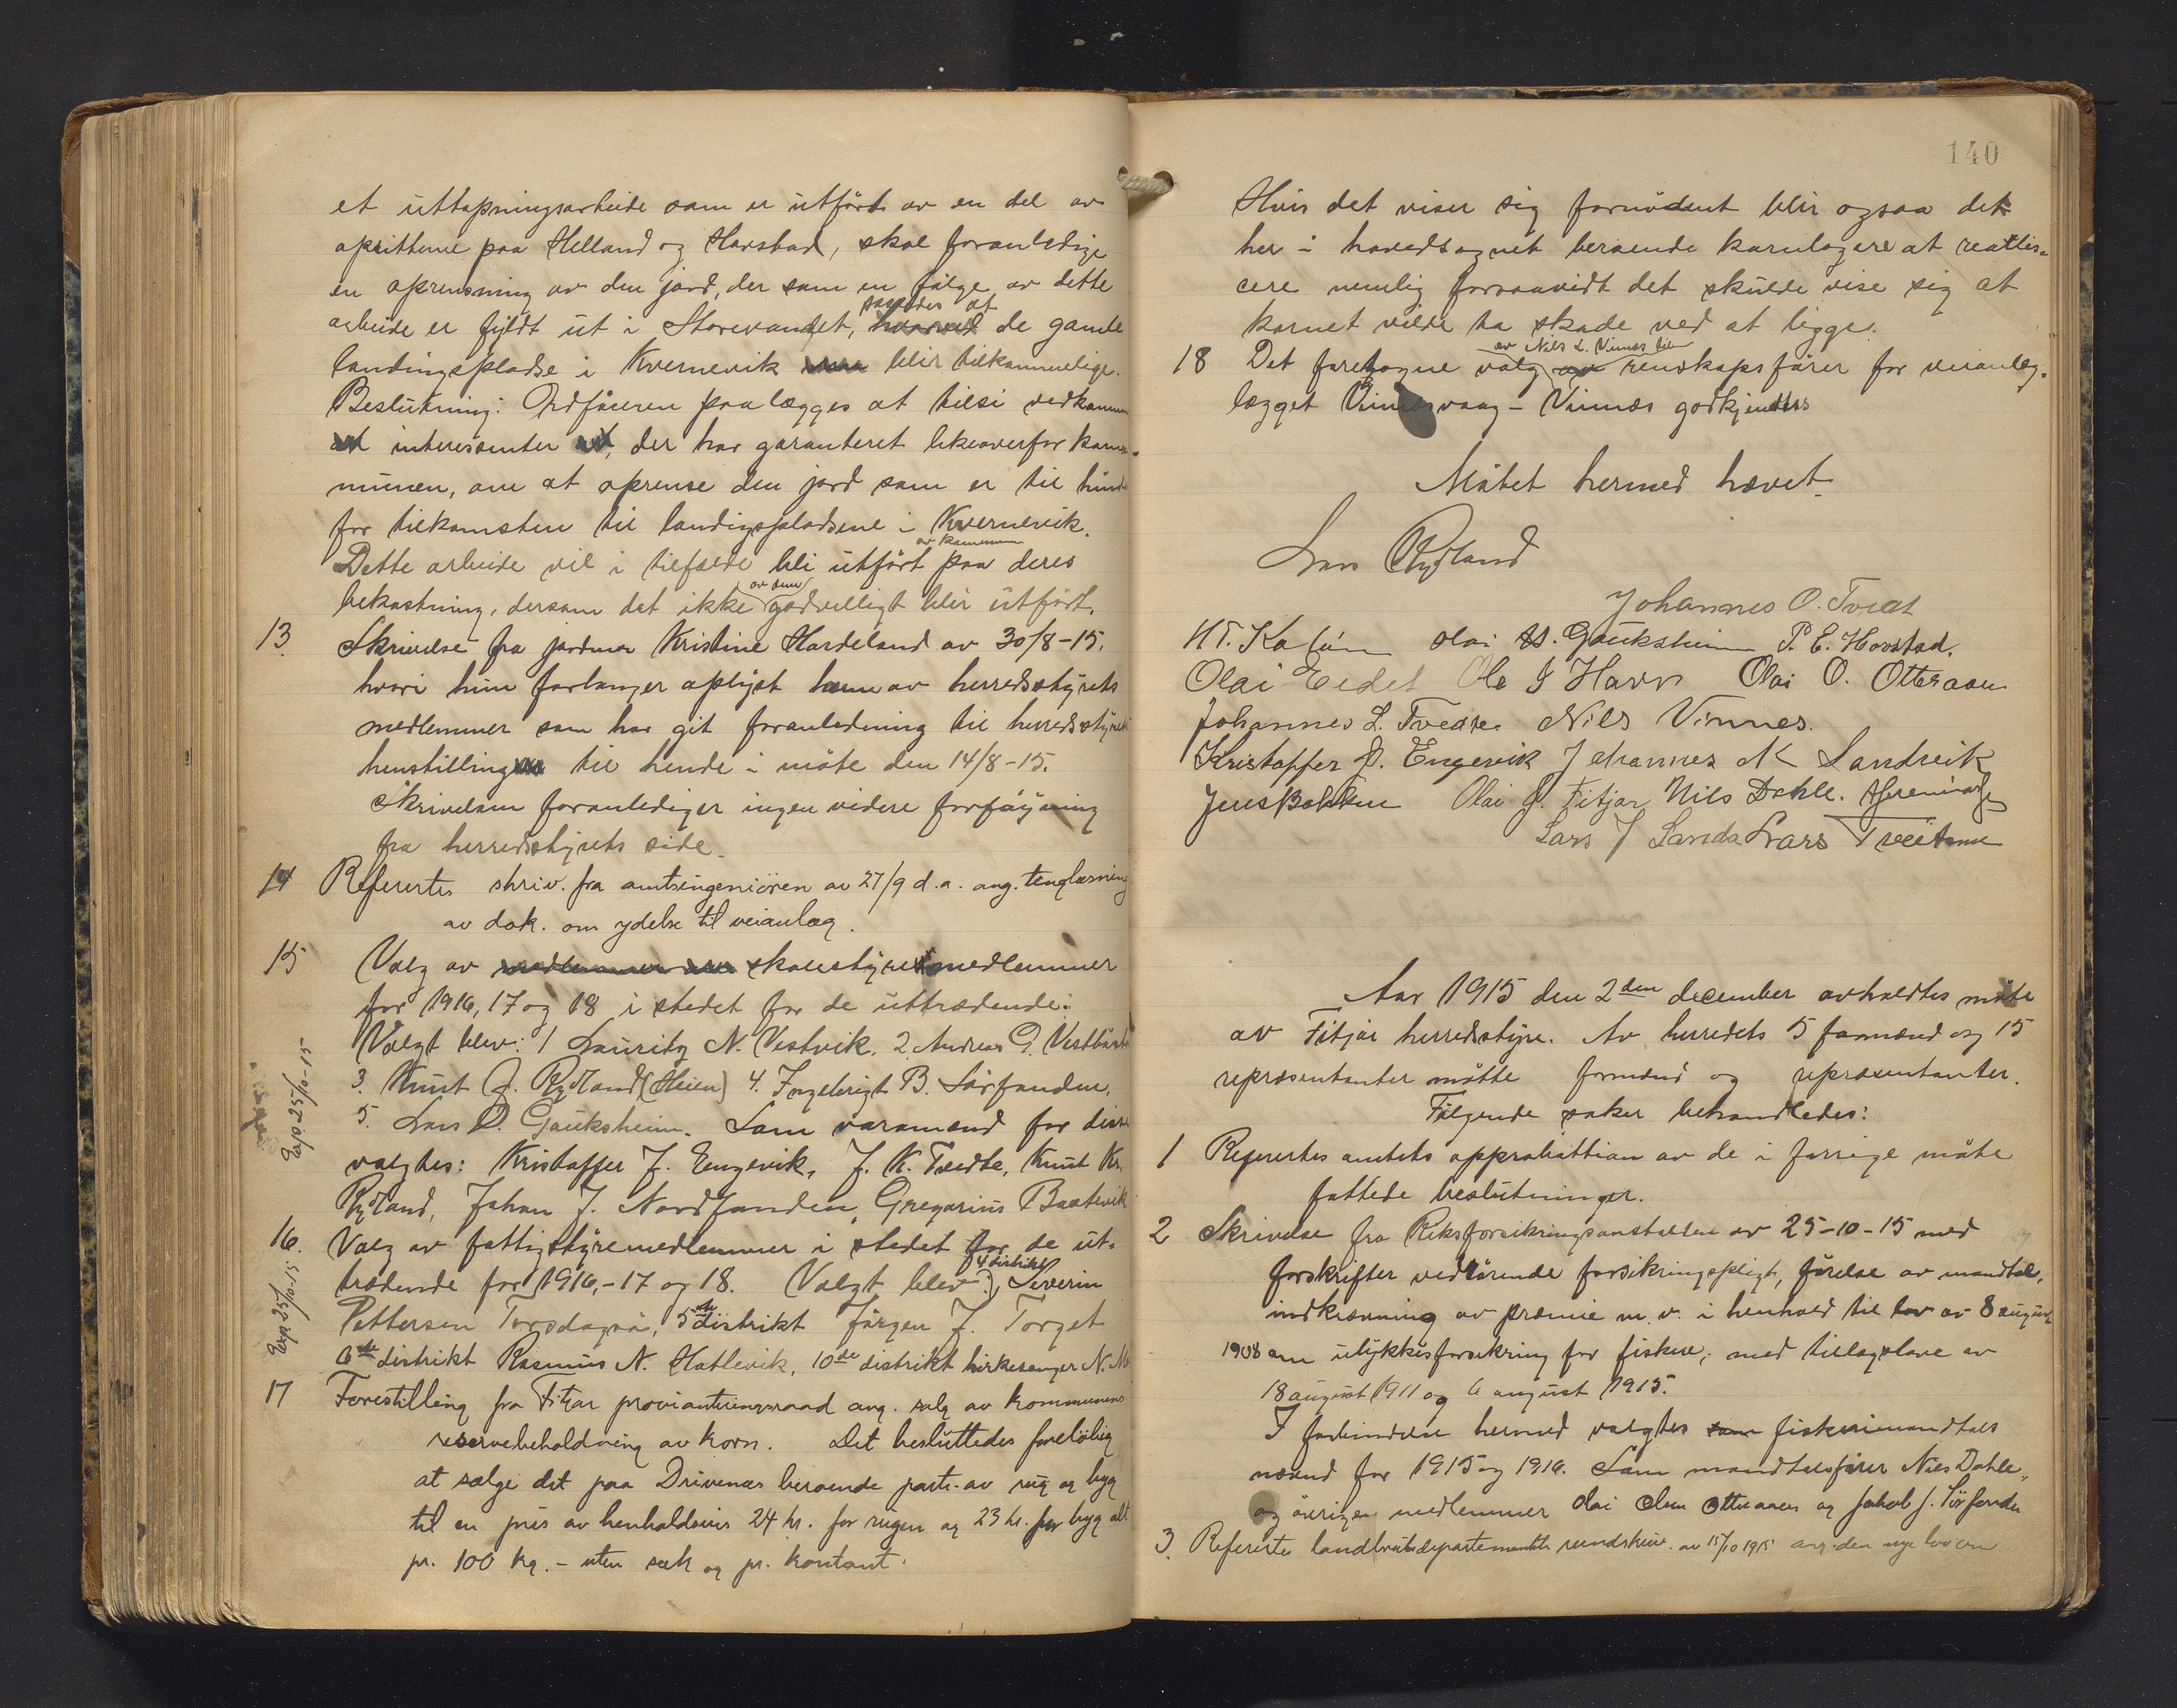 et uttapningsarbeide som er utført av en del av
opsitterne paa Helland og Havstad, skal foranledige
en oprensning av den jord, der som en følge av dette
saaledes at
arbeide er fyldt ut i Storevandet, de gamle
landingspladse i Kvernevik blir tilkommelige.
Beslutning: Ordføreren paalægges at tilsi vedkomm
interessenter der har garanteret likeoverfor kom-
munen, om at oprense den jord som er til hind
for tilkomsten til landigspladsene i Kvernevik.
av kommunen
Dette arbeide vil i tilfælde bli utført paa deres
av dem
bekostning, dersom det ikke godvilligt blir utført.
13. Skrivelse fra jordmor Kristine Hardeland av 30/8-15.
hvori hun forlanger oplyst hvem av herredsstyrets
medlemmer som har git foranledning til herredsstyrets
henstilling til hende i møte den 14/8-15.
Skrivelsen foranlediger ingen videre forføyning
fra herredsstyrets side.
14 Refertes skriv. fra amtsingeniøren av 27/9 d.a. ang. tinglæsning
av dok. om ydelse til veianlæg.
15 Valg av skolestyremedlemmer
for 1916, 17 og 18 i stedet for de uttrædende:
Valgt blev: 1 Lauritz N. Vestvik. 2. Andreas G. Vestbøst
3. Knut J. Rydland (Heien) 4. Ingebrigt B. Sørfonden,
5. Lars O. Gauksheim. Som varamænd for disse
Exp 25/10-15
valgtes: Kristoffer J. Engevik, J. K. Tvedte, Knut Kr.
Rydland, Johan J. Nordfonden, Gregorius Baatevik
16. Valg av fattigstyremedlemmer i stedet for de ut-
4 distrikt
trædende for 1916,-17 og 18. Valgt blev: Severin
Exp 25/10-15
Pettersen Torsdagsø, 5te distrikt Jørgen J. Torget
6te distrikt Rasmus N. Hatlevik, 10de distrikt kirkesanger N. M
17 Forestilling fra Fitjar provianteringsraad ang. salg av kommunens
reservebeholdning av korn. Det besluttedes foreløbig
at sælge det paa Drivenæs beroende parti av rug og byg
til en pris av henholdsvis 24 kr. for rugen og 23 kr. for byg alt
pr. 100 kg. - uten sæk og pr. kontant.
140
Hvis det viser sig fornødent blir ogsaa det
her i hovedsognet beroende kornlager at realis-
cere nemlig forsaavidt det skulde vise sig at
kornet vilde ta skade ved at ligge.
av Nils L. Vinnes til
18 Det foretagne valg renskapsfører for veianlæg-
lægget Vinnesvaag - Vinnæs godkjendtes
Møtet hermed hævet.
Lars Rydland
Johannes O. Tveit
Olai H. Gauksheim P. E. Havstad.
Olai Eidet Ole J Havn Olai O. Otteraaen
Johannes L. Tvedte Nils Vinnes.
Kristoffer J. Engevik Johannes N Sandvik
Jens Bakken Olai J. Fitjar Nils Dahle.
Lars J Sanda Lars Tveitane
Aar 1915 den 2den december avholdtes møte
av Fitjar herredsstyre. Av herredets 5 formænd og 15
repræsentanter møtte formænd og repræsentanter.
Følgende saker behandledes:
1 Refertes amtets approbattion av de i forrige møte
fattede beslutninger.
2 Skrivelse fra Riksforsikringsanstalten av 25-10-15 med
forskrifter vedrørende forsikringspligt, førelse av mandtal,
indkrævning av præmie m. v. i henhold til lov av 8 august
1908 om ulykkesforsikring for fiskere, med tillægslove av
18 august 1911 og 6 august 1915.
I forbindelse hermed valgtes fiskerimandtals
nævnd for 1915 og 1916. Som mandtalsfører Nils Dahle,
og øvrige medlemmer Olai Olsen Otteraaen og Jakob J. Sørfonden
3. Referte landbruksdepartementets rundskriv. av 15/10 1915 ang. den nye lov om